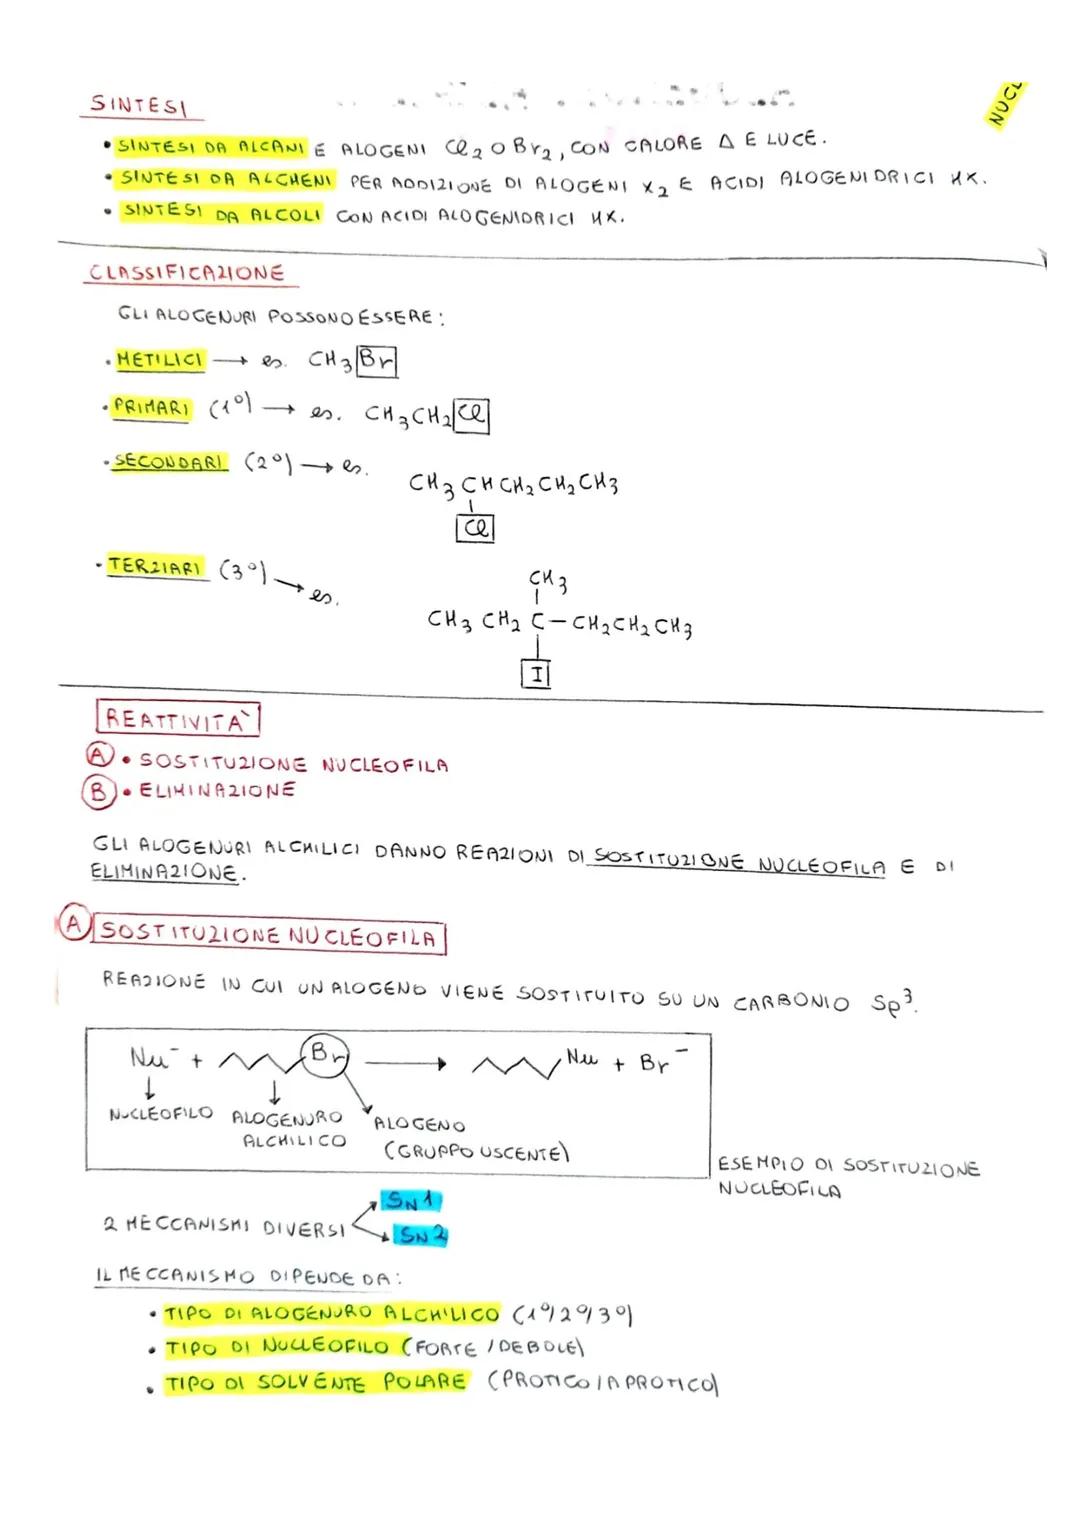 NUCL
SINTESI
• SINTESI DA ALCANI E ALOGENI Cl2 O Br2, CON CALORE Δ E LUCE.
• SINTESI DA ALCHENI PER ADDIZIONE DI ALOGENI X2 E ACIDI ALOGENIDRICI HX.
• SINTESI DA ALCOLI CON ACIDI ALOGENIDRICI HX.
CLASSIFICAZIONE
GLI ALOGENURI POSSONO ESSERE:
• METILICI → es. CH3Br
• PRIMARI (1°) → es. CH3CH2Cl
• SECONDARI (2°) → es.
CH3CHCH2CH2CH3
Cl
• TERZIARI (3°) → es.
CH3
CH3CH2C-CH2CH2CH3
I
REATTIVITÀ
A • SOSTITUZIONE NUCLEOFILA
B • ELIMINAZIONE
GLI ALOGENURI ALCHILICI DANNO REAZIONI DI SOSTITUZIONE NUCLEOFILA E DI
ELIMINAZIONE.
A SOSTITUZIONE NUCLEOFILA
REAZIONE IN CUI UN ALOGENO VIENE SOSTITUITO SU UN CARBONIO Sp³.
Nu⁻ + Br → Nu + Br⁻
NUCLEOFILO ALOGENURO ALOGENO
ALCHILICO (GRUPPO USCENTE)
ESEMPIO DI SOSTITUZIONE
NUCLEOFILA
SN1
2 MECCANISMI DIVERSI
SN2
IL MECCANISMO DIPENDE DA:
• TIPO DI ALOGENURO ALCHILICO (1°/2°/3°)
• TIPO DI NUCLEOFILO (FORTE/DEBOLE)
• TIPO DI SOLVENTE POLARE (PROTICO/APROTICO)